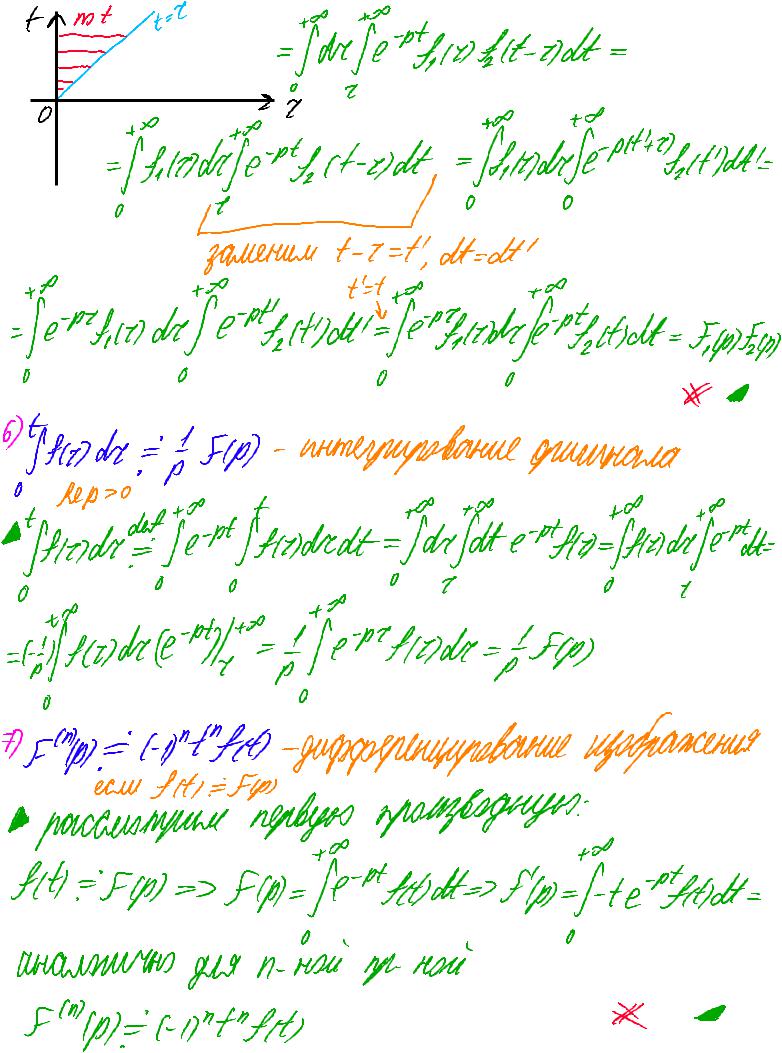 t m t t=τ
0 τ
= ∫₀^{+∞} dτ ∫_τ^{+∞} e^{-pt} f₁(τ) f₂(t-τ) dt =
= ∫₀^{+∞} f₁(τ) dτ ∫_τ^{+∞} e^{-pt} f₂(t-τ) dt = ∫₀^{+∞} f₁(τ) dτ ∫₀^{+∞} e^{-p(t'+τ)} f₂(t') dt' =
заменим t-τ=t', dt=dt'
t'=t
= ∫₀^{+∞} e^{-pτ} f₁(τ) dτ ∫₀^{+∞} e^{-pt'} f₂(t') dt' = ∫₀^{+∞} e^{-pτ} f₁(τ) dτ ∫₀^{+∞} e^{-pt} f₂(t) dt = F₁(p) F₂(p)
6) ∫₀^t f(τ) dτ ≓ 1/p F(p) - интегрирование оригинала
Re p > 0
∫₀^t f(τ) dτ ≓ def ∫₀^{+∞} e^{-pt} ∫₀^t f(τ) dτ dt = ∫₀^{+∞} dτ ∫_τ^{+∞} dt e^{-pt} f(τ) = ∫₀^{+∞} f(τ) dτ ∫_τ^{+∞} e^{-pt} dt =
= (-1/p) ∫₀^{+∞} f(τ) dτ (e^{-pt})|_τ^{+∞} = 1/p ∫₀^{+∞} e^{-pτ} f(τ) dτ = 1/p F(p)
7) F^{(n)}(p) ≓ (-1)ⁿ tⁿ f(t) - дифференцирование изображения
если f(t) ≓ F(p)
рассмотрим первую производную:
f(t) ≓ F(p) => F(p) = ∫₀^{+∞} e^{-pt} f(t) dt => F'(p) = ∫₀^{+∞} -t e^{-pt} f(t) dt =
аналогично для n-ной пр-ной
F^{(n)}(p) ≓ (-1)ⁿ tⁿ f(t)